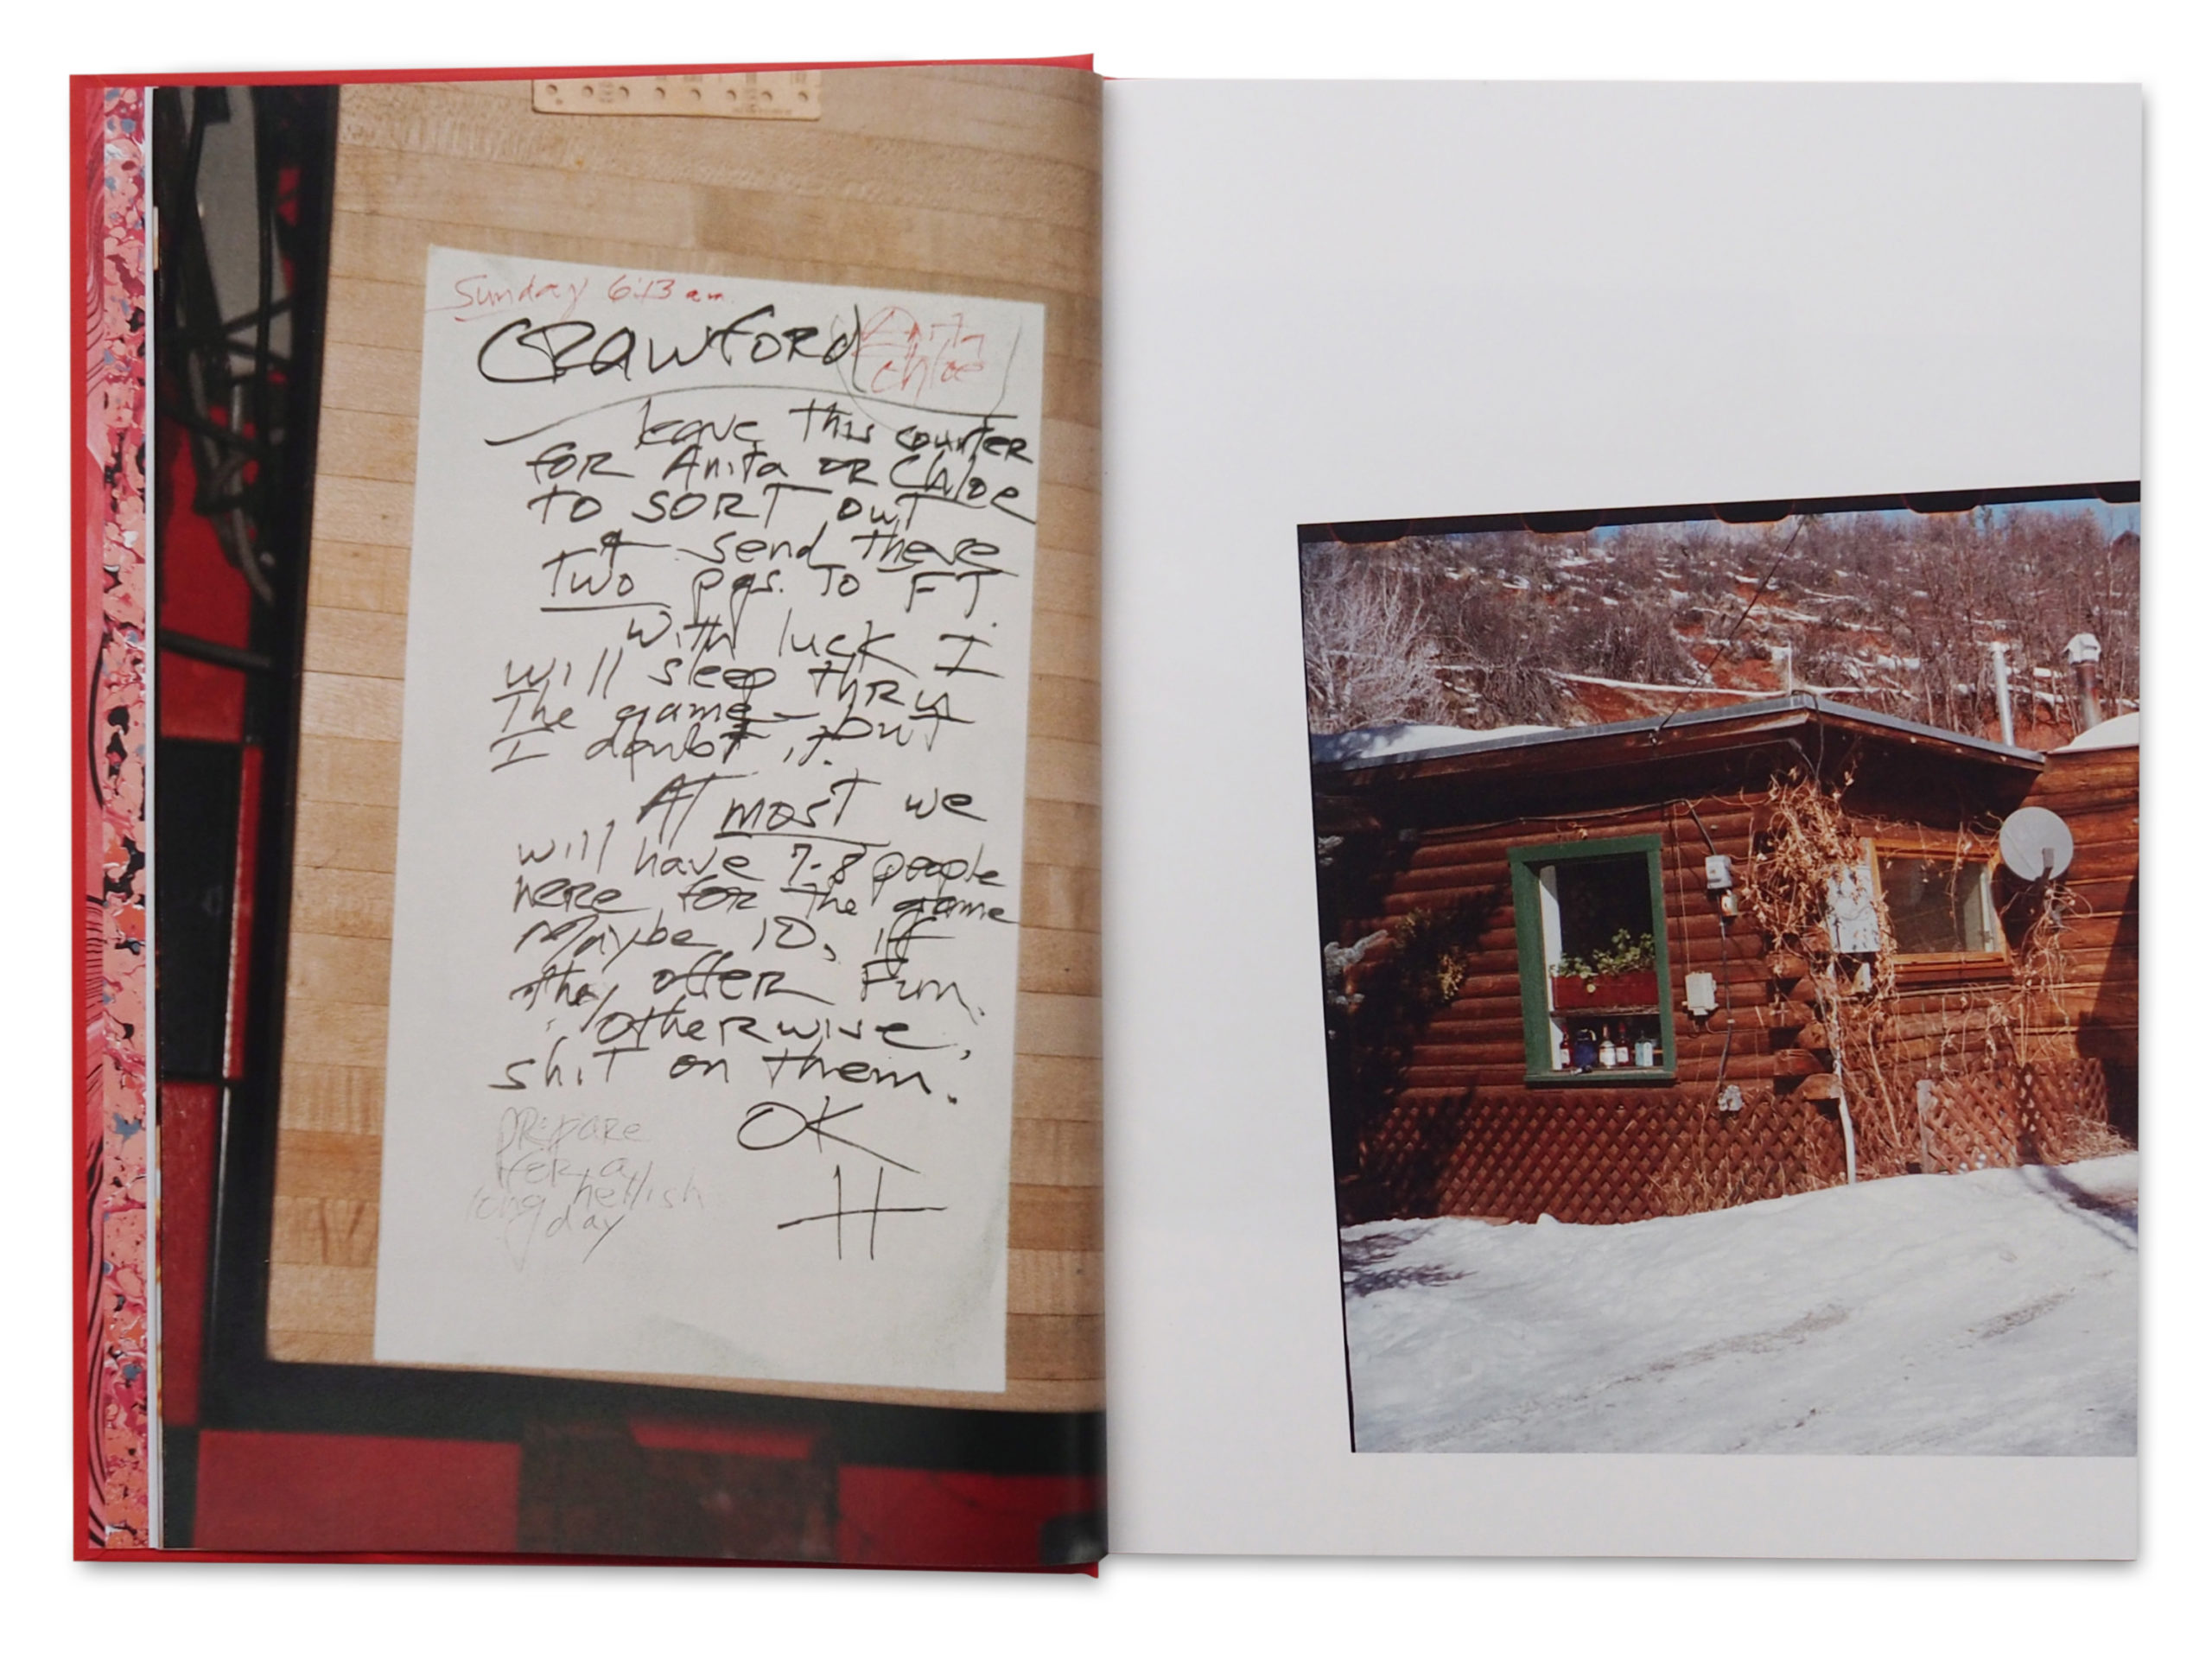 Sunday 6:13 am.
Crawford
Anita
Chloe
leave this counter
for Anita or Chloe
to sort out
+ send these
two pgs. to FT.
with luck I
will sleep thru
the game - but
I doubt it.
At most we
will have 7-8 people
here for the game
Maybe 10, if
they offer Fun.
Otherwise,
shit on them.
OK
H
prepare
for a
long hellish
day